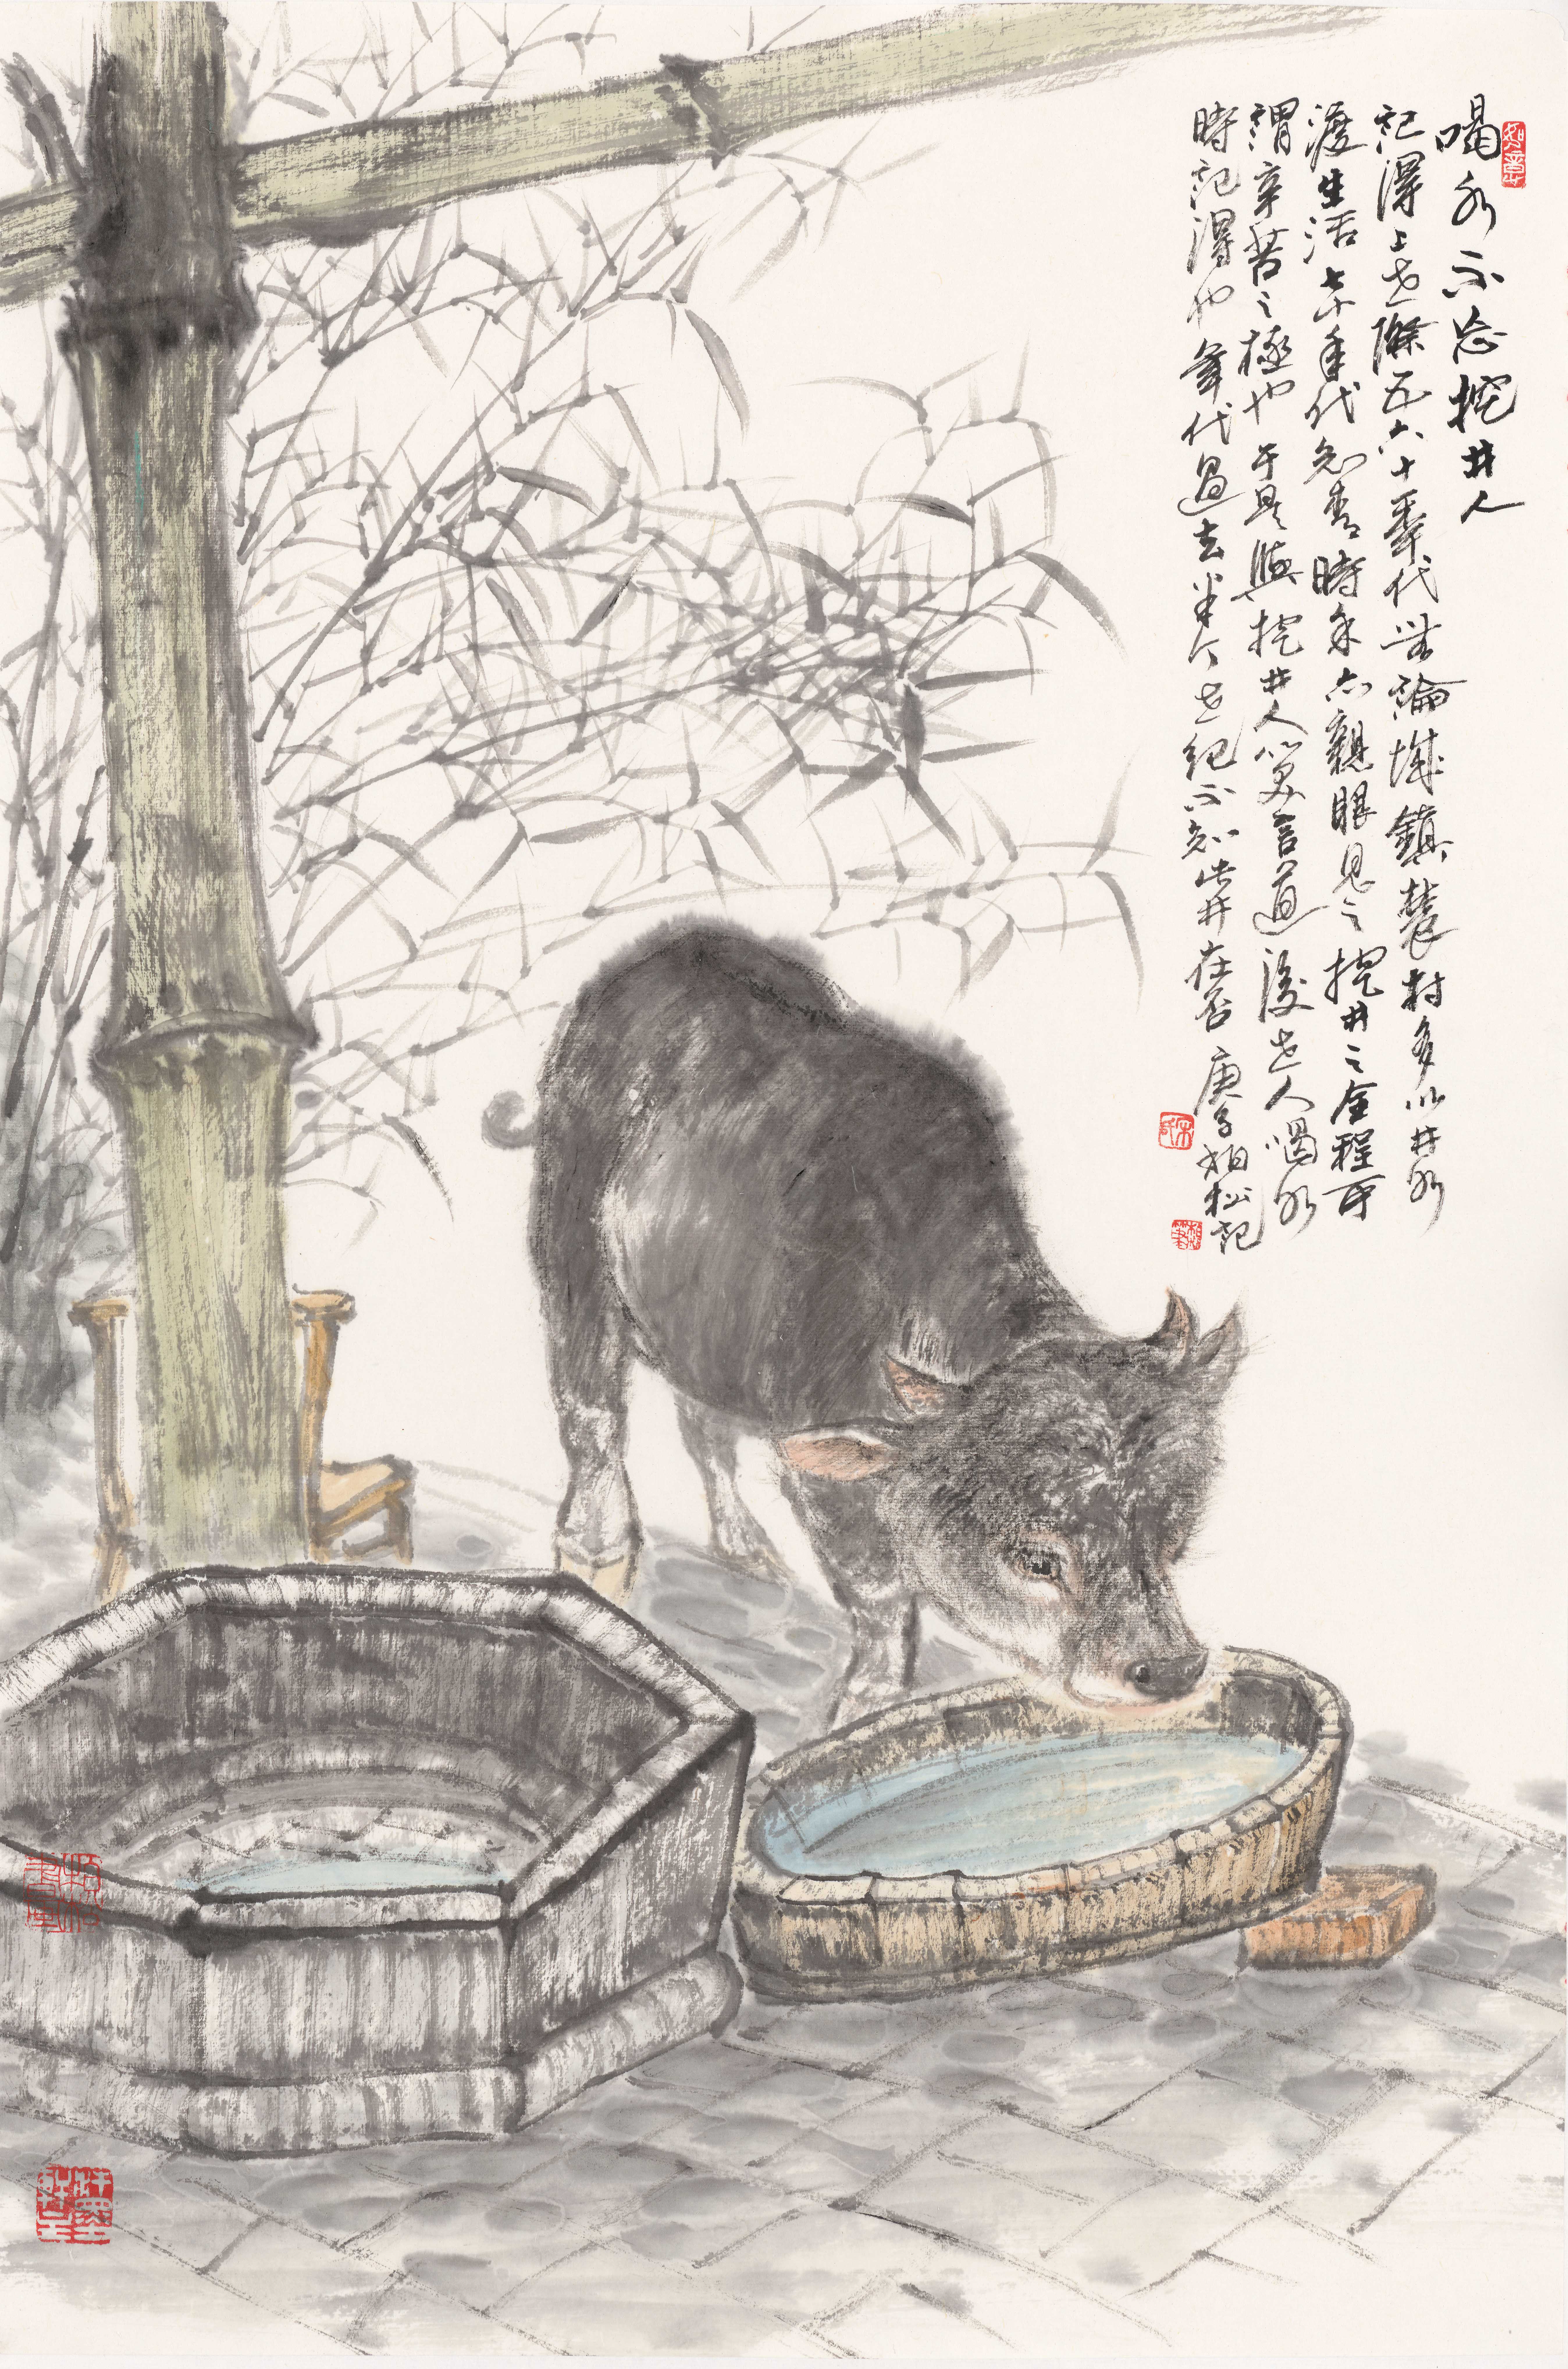 喝水不忘挖井人
記得上世際五六十年代無論城鎮農村多以井水
渡生活七十年代知青時余亦親眼見之挖井之全程可
謂辛苦之極也于是與挖井人以笑言道後世人喝水
時記得也年代過去半个世紀不知此井在否 庚子柏松記
如意